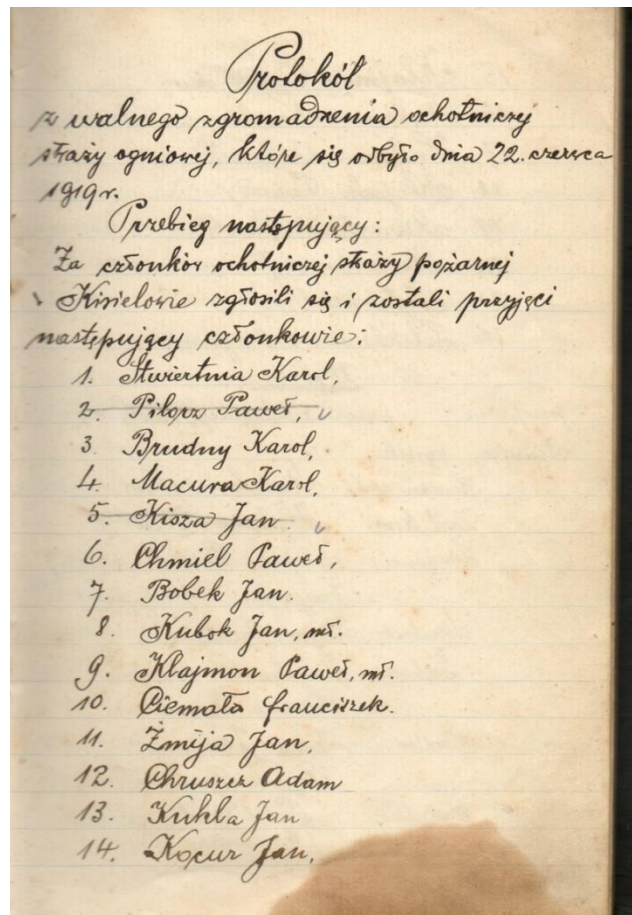 Protokół
z walnego zgromadzenia ochotniczej
straży ogniowej, które się odbyło dnia 22. czerwca
1919 r.
Przebieg następujący:
Za członków ochotniczej straży pożarnej
w Kisielowie zgłosili się i zostali przyjęci
następujący członkowie:
1. Stwiertnia Karol,
2. Pilorz Paweł,
3. Brudny Karol,
4. Macura Karol,
5. Kisza Jan.
6. Chmiel Paweł,
7. Bobek Jan.
8. Kubok Jan, mł.
9. Klajmon Paweł, mł.
10. Ciemała franciszek.
11. Żmija Jan,
12. Chruszcz Adam
13. Kukla Jan
14. Kocur Jan,